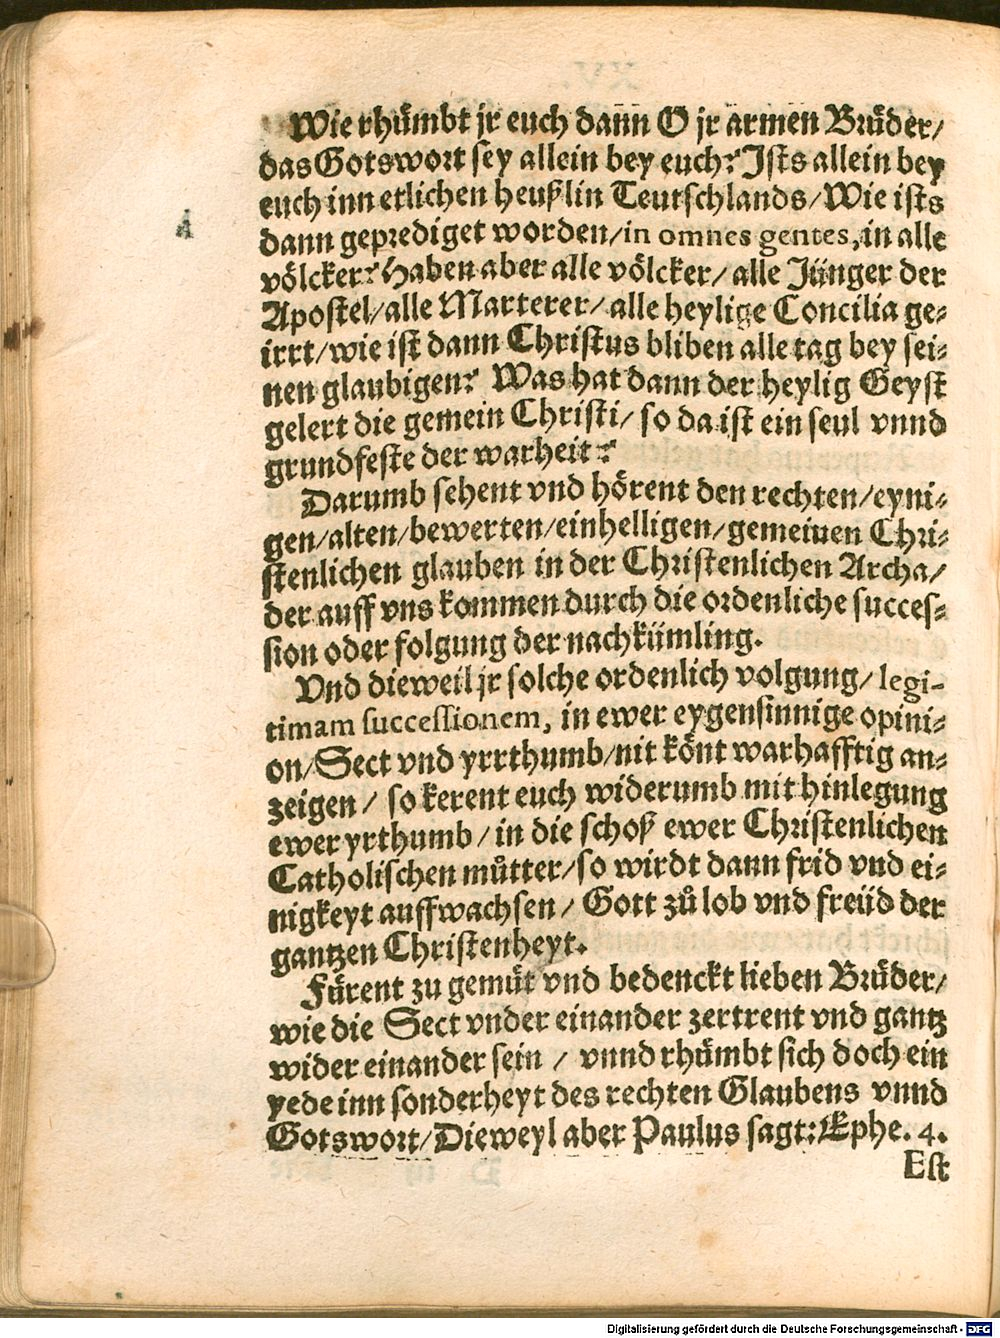 Wie rhümbt jr euch dann O jr armen Brüder/
das Gotswort sey allein bey euch? Ists allein bey
euch inn etlichen heußlin Teutschlands/Wie ists
dann geprediget worden/in omnes gentes, in alle
völcker? Haben aber alle völcker/ alle Jünger der
Apostel/alle Marterer/ alle heylige Concilia ge-
irrt/wie ist dann Christus bliben alle tag bey sei-
nen glaubigen? Was hat dann der heylig Geyst
gelert die gemein Christi/ so da ist ein seul vnnd
grundfeste der warheit?
Darumb sehent vnd hörent den rechten/eyni-
gen/alten/bewerten/einhelligen/gemeinen Chri-
stenlichen glauben in der Christenlichen Archa/
der auff vns kommen durch die ordenliche succes-
sion oder folgung der nachkümling.
Vnd dieweil jr solche ordenlich volgung/ legi-
timam successionem, in ewer eygensinnige opini-
on/Sect vnd yrrthumb/nit könt warhafftig an-
zeigen / so kerent euch widerumb mit hinlegung
ewer yrthumb / in die schoß ewer Christenlichen
Catholischen můtter/so wirdt dann frid vnd ei-
nigkeyt auffwachsen / Gott zů lob vnd freüd der
gantzen Christenheyt.
Fürent zu gemüt vnd bedenckt lieben Brüder/
wie die Sect vnder einander zertrent vnd gantz
wider einander sein / vnnd rhümbt sich doch ein
yede inn sonderheyt des rechten Glaubens vnnd
Gotswort/Dieweyl aber Paulus sagt: Ephe. 4.
Est
Digitalisierung gefördert durch die Deutsche Forschungsgemeinschaft - DFG